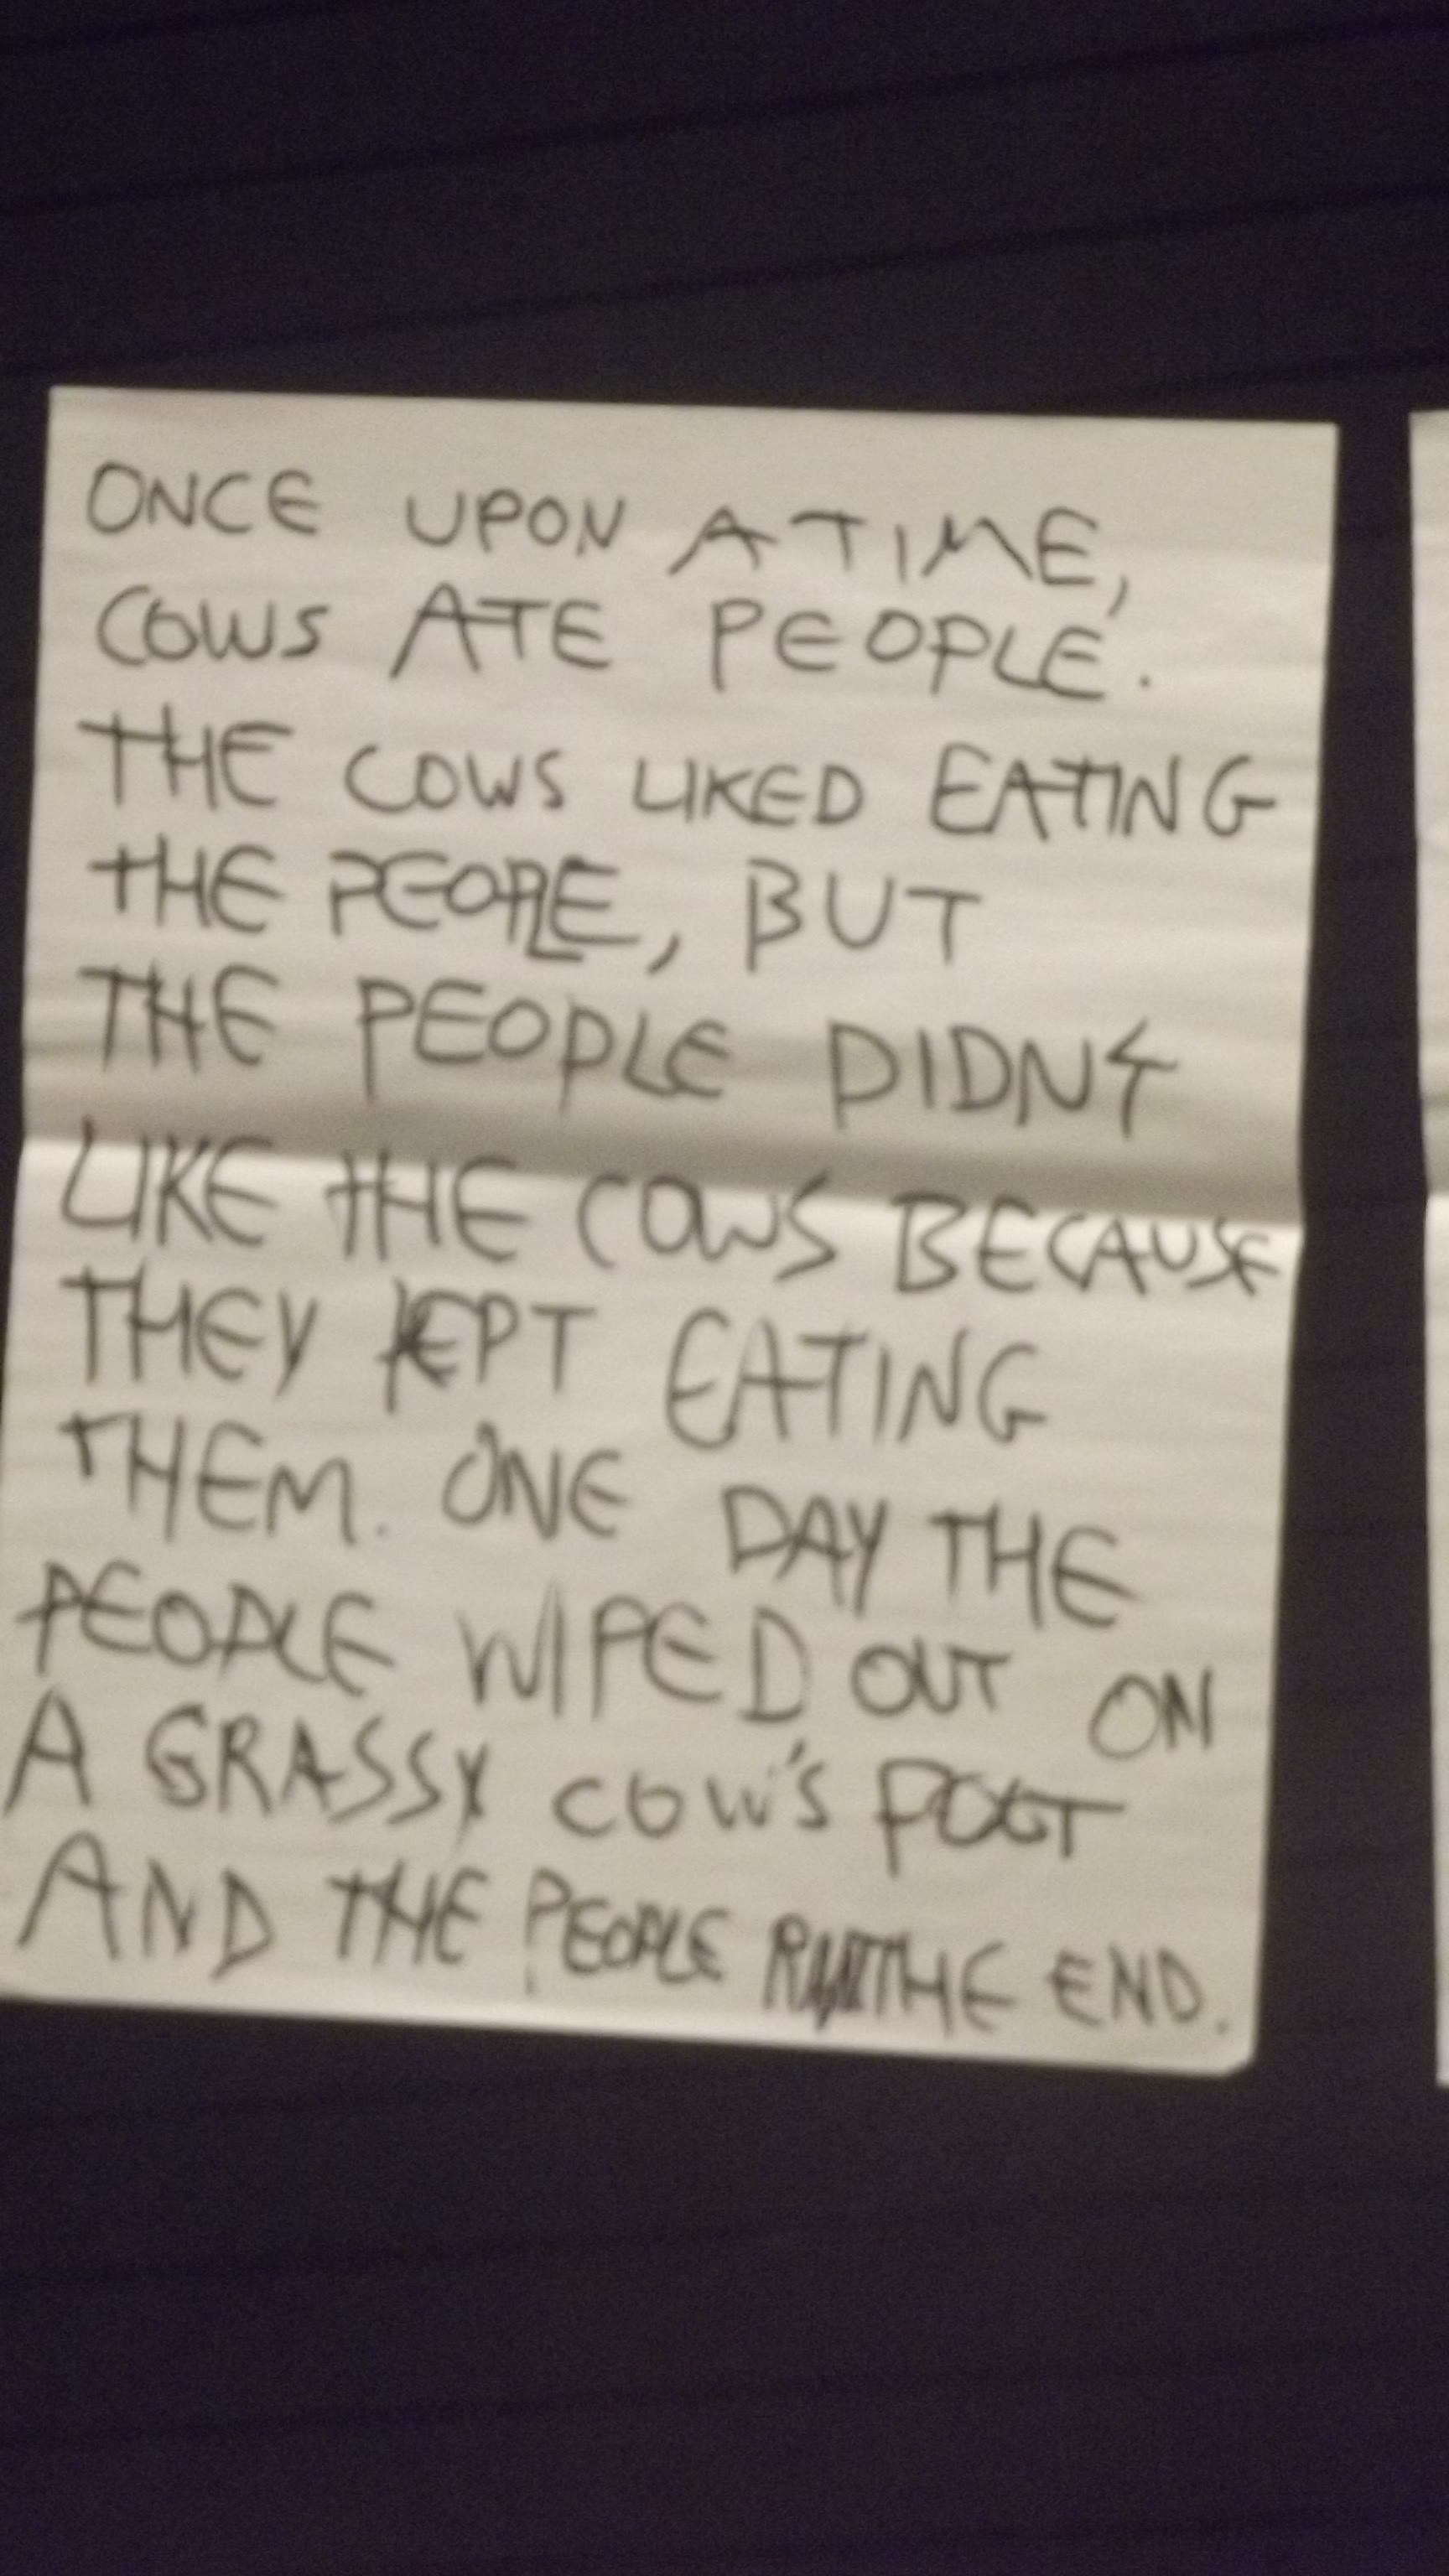 ONCE UPON A TIME,
COWS ATE PEOPLE.
THE COWS LIKED EATING
THE PEOPLE, BUT
THE PEOPLE DIDNT
LIKE THE COWS BECAUSE
THEY KEPT EATING
THEM. ONE DAY THE
PEOPLE WIPED OUT ON
A GRASSY COW'S
AND THE PEOPLE THE END.